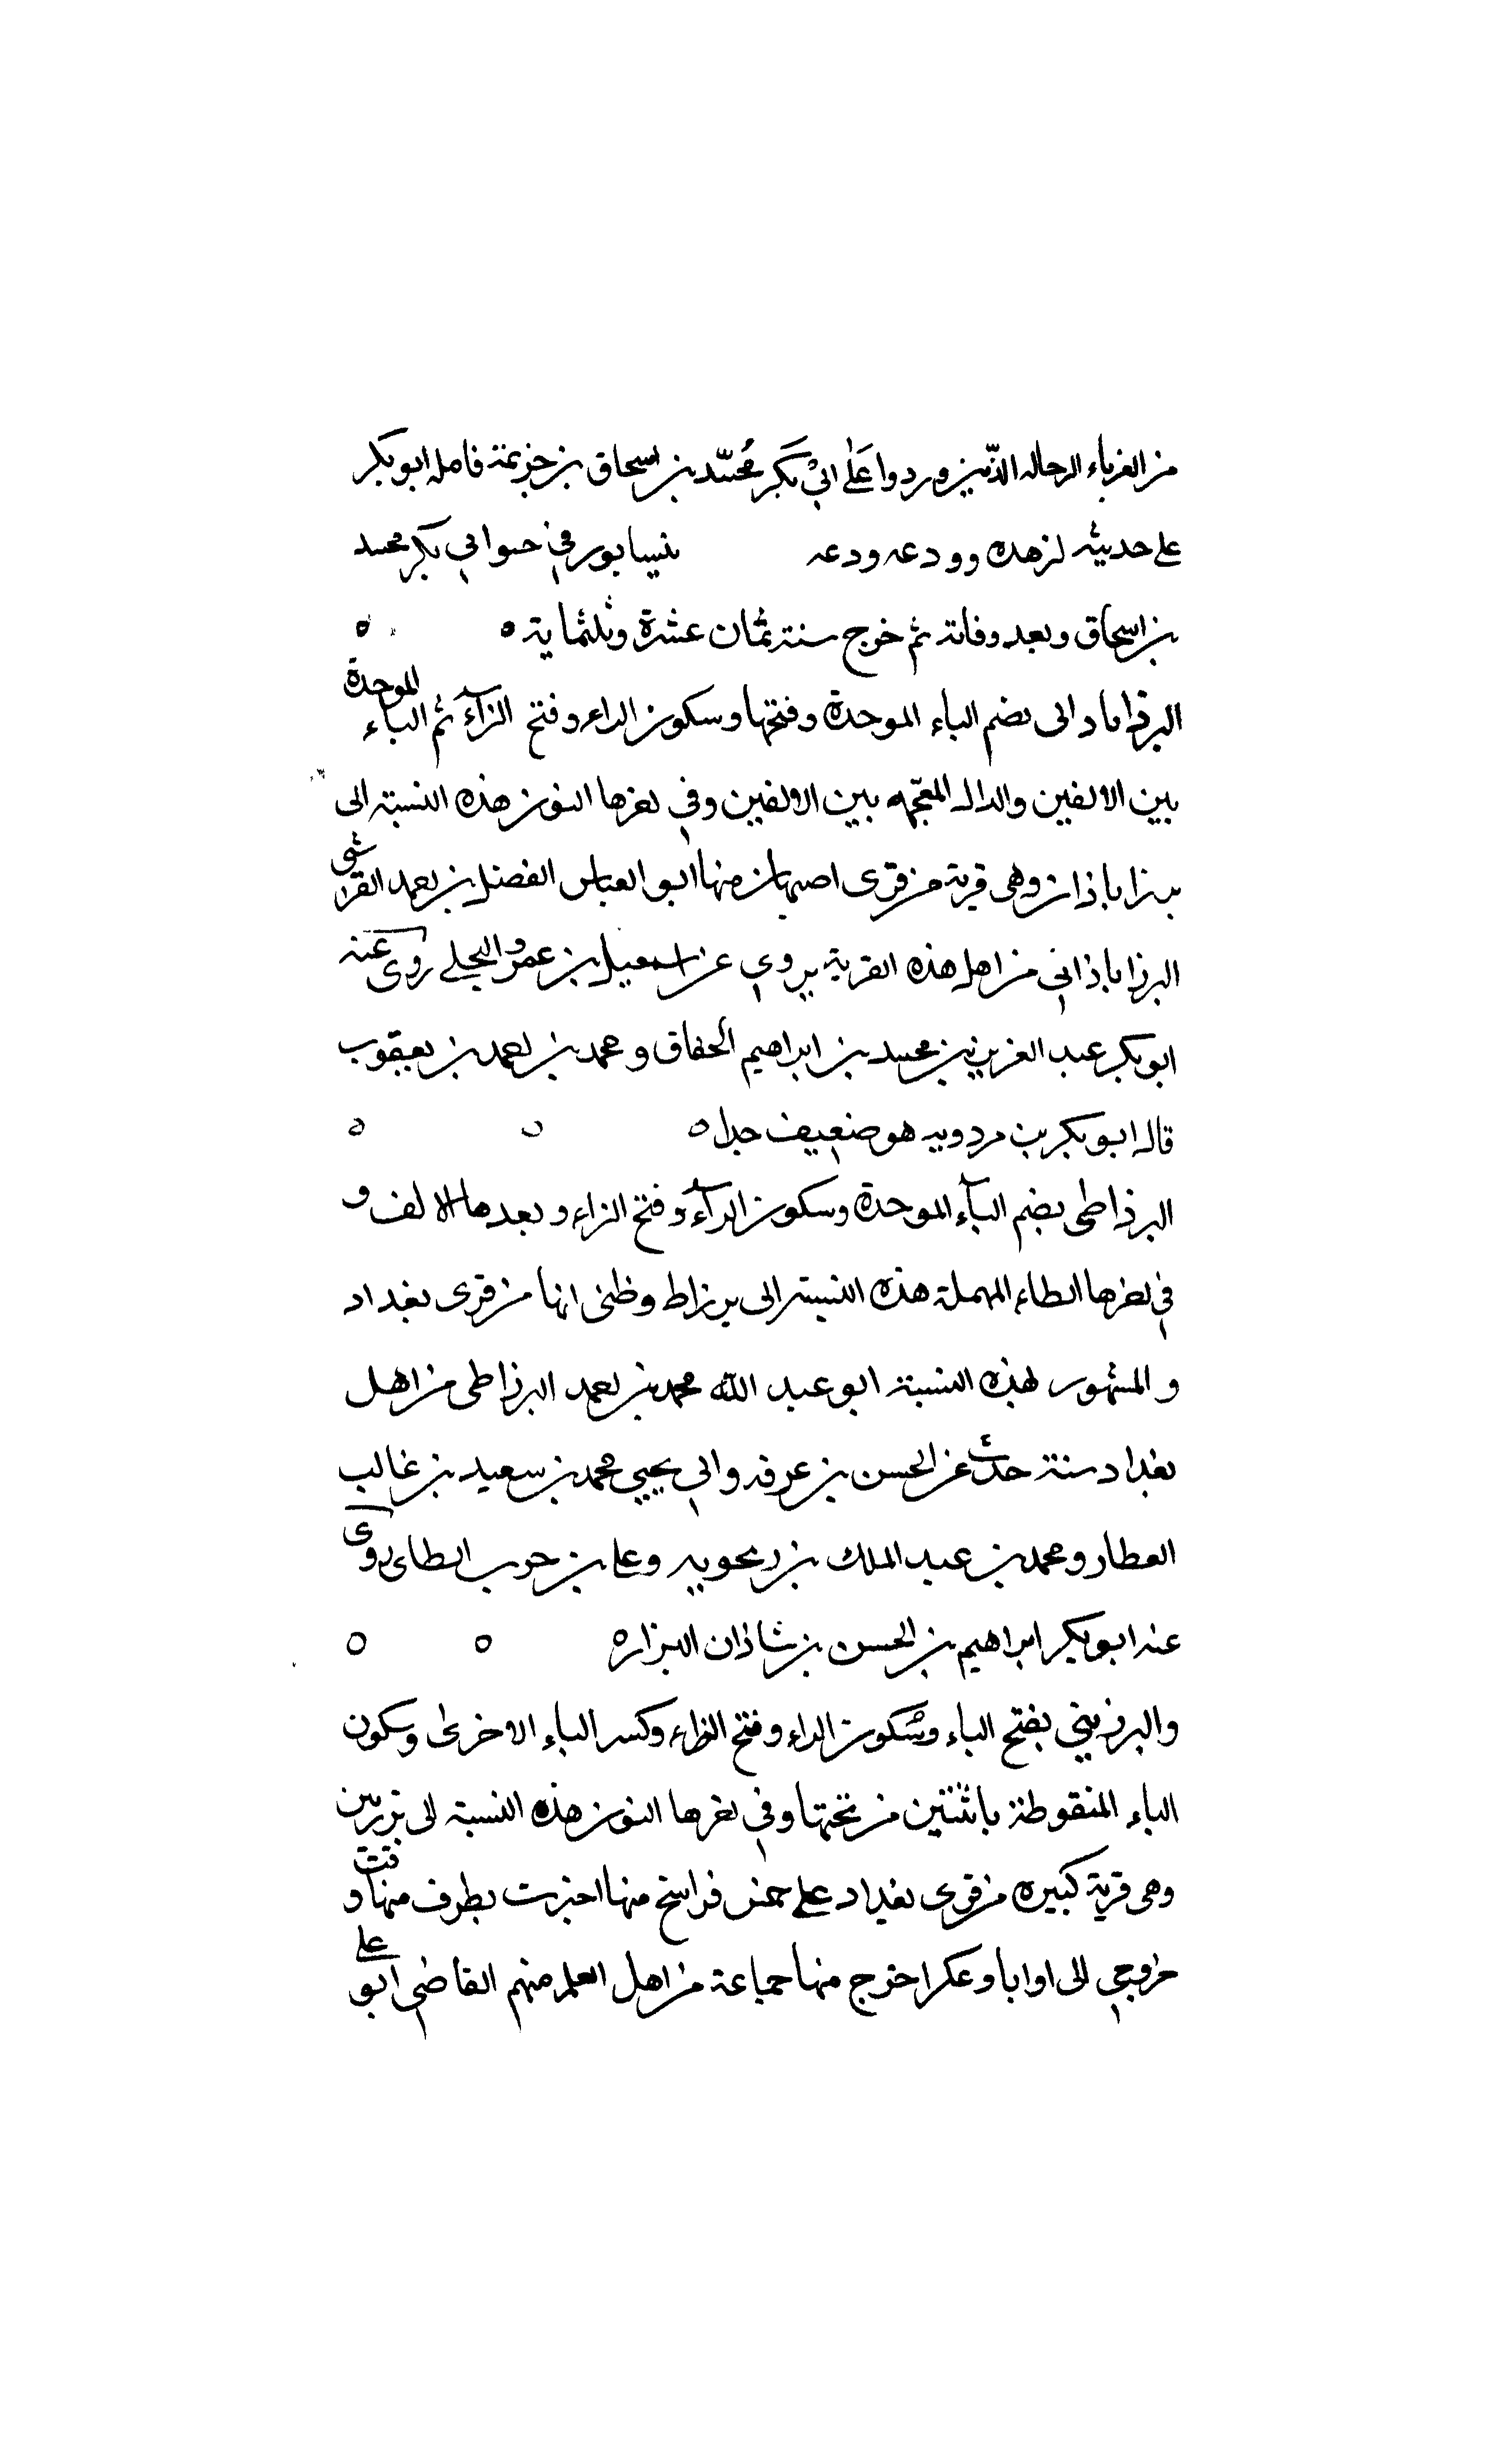 من الغرباء الرحاله الذين وردوا على ابي بكر محمد بن اسحاق بن خزيمة فامله ابو بكر
على حديثه لزهده وودعه ودعه بنيسابور في ابي بكر محمد
بن اسحاق وبعد وفاته ثم خرج سنة ثمان عشرة وثلثماية ه ه
البرزاباداني بضم الباء الموحدة وفتحها وسكون الراء وفتح الزآء ثم الباء الموحدة
بين الالفين والدال المعجمه بين الالفين وفي اخرها النون هذه النسبة الى
برزاباذان وهي قرية من قرى اصبهان منها ابو العباس الفضل بن احمد القراشي
البرزاباذاني من اهل هذه القرية يروي عن اسمعيل بن عمرو البجلي روى عنه
ابو بكر عبد العزيز بن محمد بن ابراهيم الخفاق ومحمد بن احمد بن يعقوب
قال ابو بكر بن مردويه هو ضعيف جدا ه ه ه
البرزاطي بضم البآء الموحدة وسكون الرآء وفتح الزاء وبعدها الالف و
في اخرها الطاء المهملة هذه النسبة الى برزاط وظني انها من قرى بغداد
والمشهور بهذه النسبة ابو عبد الله محمد بن احمد البرزاطي من اهل
بغداد سنة حدث عن الحسن بن عرفه وابي يحيي محمد بن سعيد بن غالب
العطار ومحمد بن عبد الملك بن زنجويه وعلي بن حرب الطاي روى
عنه ابو بكر ابراهيم بن الحسن بن شاذان البزاز ه ه ه
والبرزبيني بفتح الباء وسكون الراء وفتح الزاء وكسر الباء الاخرى وسكون
الياء المنقوطة باثنتين من تحتها وفي اخرها النون هذه النسبة الى برزبين
وهي قرية كبيره من قرى بغداد على خمس فراسخ منها اجتزت بطرف منها وقت
خروجي الى اوانا وعكبرا خرج منها جماعة من اهل العلم منهم القاضي ابو على